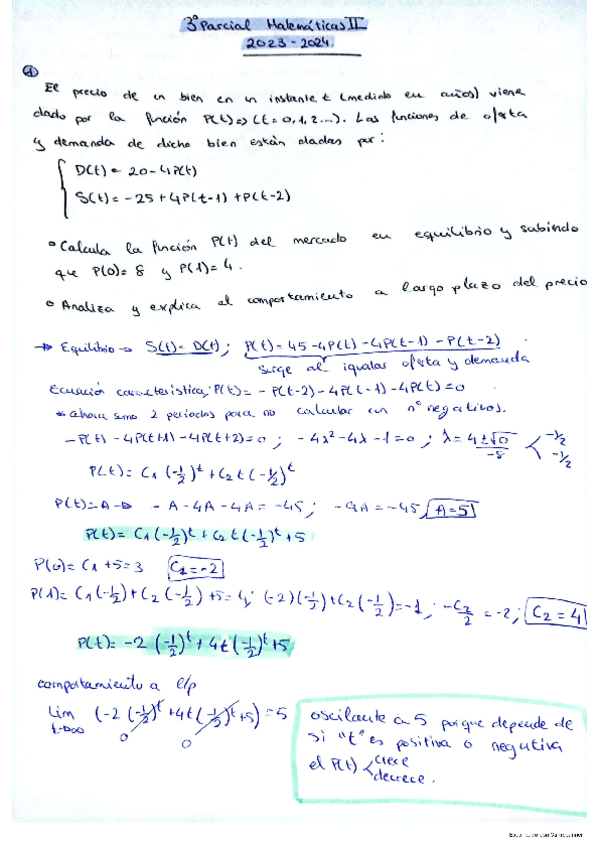 3º Parcial Matemáticas II
2023-2024
①
El precio de un bien en un instante t (medido en años) viene
dado por la función P(t)=> (t=0,1,2...). Las funciones de oferta
y demanda de dicho bien están dadas por:
D(t) = 20-4P(t)
S(t) = -25+4P(t-1)+P(t-2)
• Calcula la función P(t) del mercado en equilibrio y subindo
que P(0)= 8 y P(1)= 4.
• Analiza y explica el comportamiento a largo plazo del precio
→ Equilibrio → S(t)= D(t); P(t)= 45-4P(t)-4P(t-1)-P(t-2)
surge al igualar oferta y demanda
Ecuación característica: P(t)= -P(t-2)-4P(t-1)-4P(t)=0
* ahora sumo 2 periodos para no calcular con nº negativos.
-P(t)-4P(t+1)-4P(t+2)=0 ; -4λ²-4λ-1=0 ; λ= 4±√0 / -8 < -1/2 -1/2
P(t)= C1(-1/2)^t + C2 t(-1/2)^t
P(t)=A → -A-4A-4A=-45; -9A=-45, A=5
P(t)= C1(-1/2)^t + C2 t(-1/2)^t +5
P(0)= C1+5=3 C1=-2
P(1)= C1(-1/2)+C2(-1/2)+5=4; (-2)(-1/2)+C2(-1/2)=-1; -C2/2 =-2; C2=4
P(t)= -2(-1/2)^t + 4t(-1/2)^t +5
comportamiento a l/p
lim t→∞ (-2(-1/2)^t +4t(-1/2)^t +5) =5
0 0
oscilante a 5 porque depende de
si "t" es positiva o negativa
el P(t) < crece
decrece.